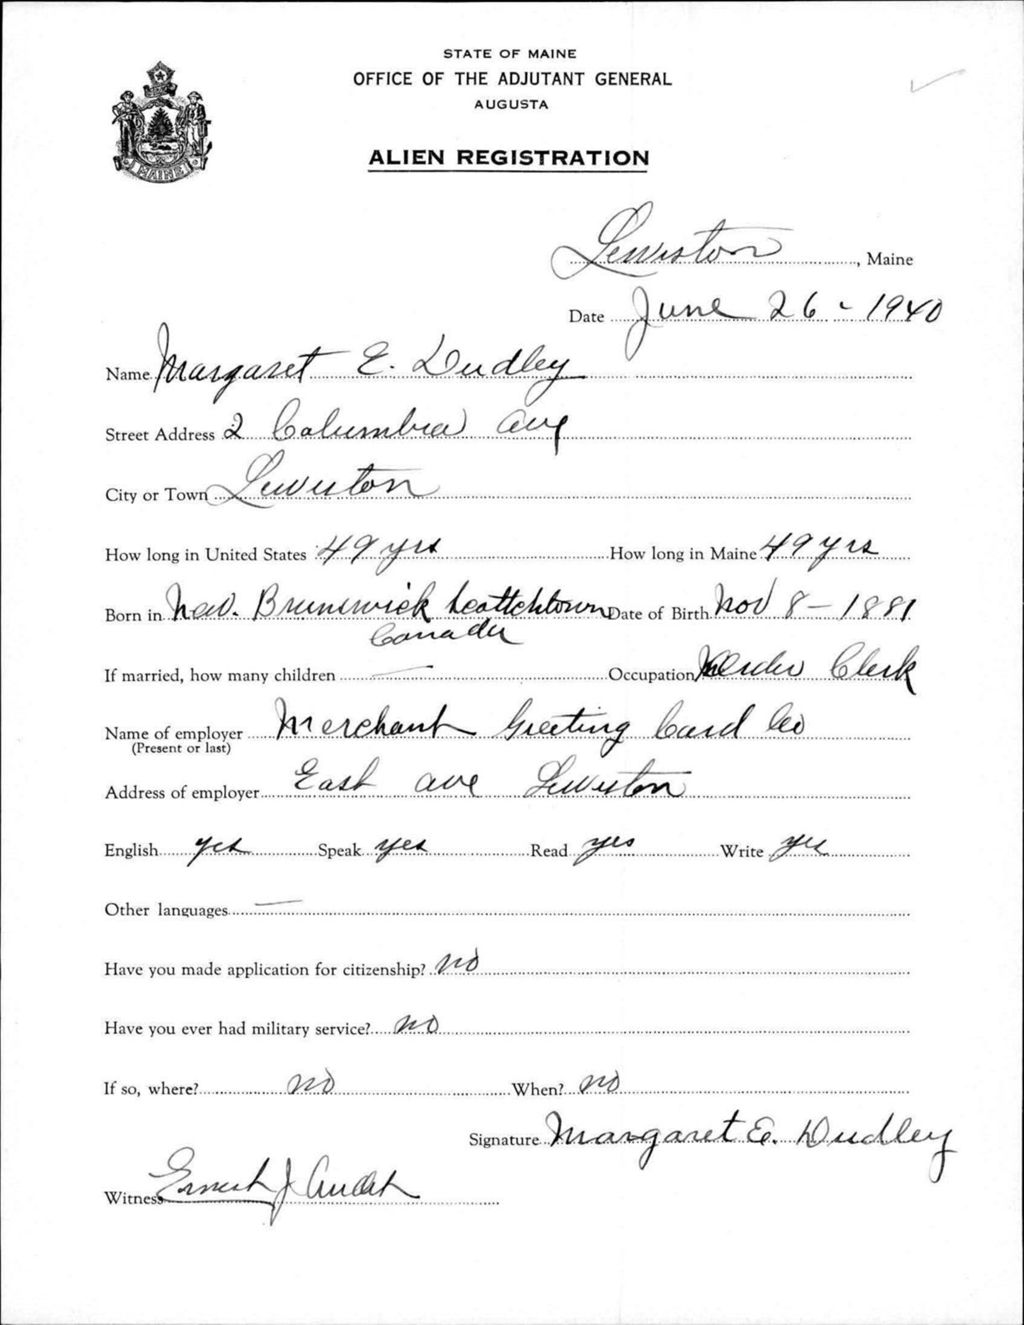 STATE OF MAINE
OFFICE OF THE ADJUTANT GENERAL
AUGUSTA
ALIEN REGISTRATION
MAINE
Lewiston, Maine
Date June 26 - 1940
Name Margaret E. Dudley
Street Address 2 Columbia Ave
City or Town Lewiston
How long in United States 49 yrs How long in Maine 49 yrs
Born in New. Brunswick Scottchtown Date of Birth Nov 8 - 1881
Canada
If married, how many children — Occupation Order Clerk
Name of employer Merchant Greeting Card Co
(Present or last)
Address of employer East ave Lewiston
English yes Speak yes Read yes Write yes
Other languages —
Have you made application for citizenship? no
Have you ever had military service? no
If so, where? no When? no
Signature Margaret E. Dudley
Witness Ernest J